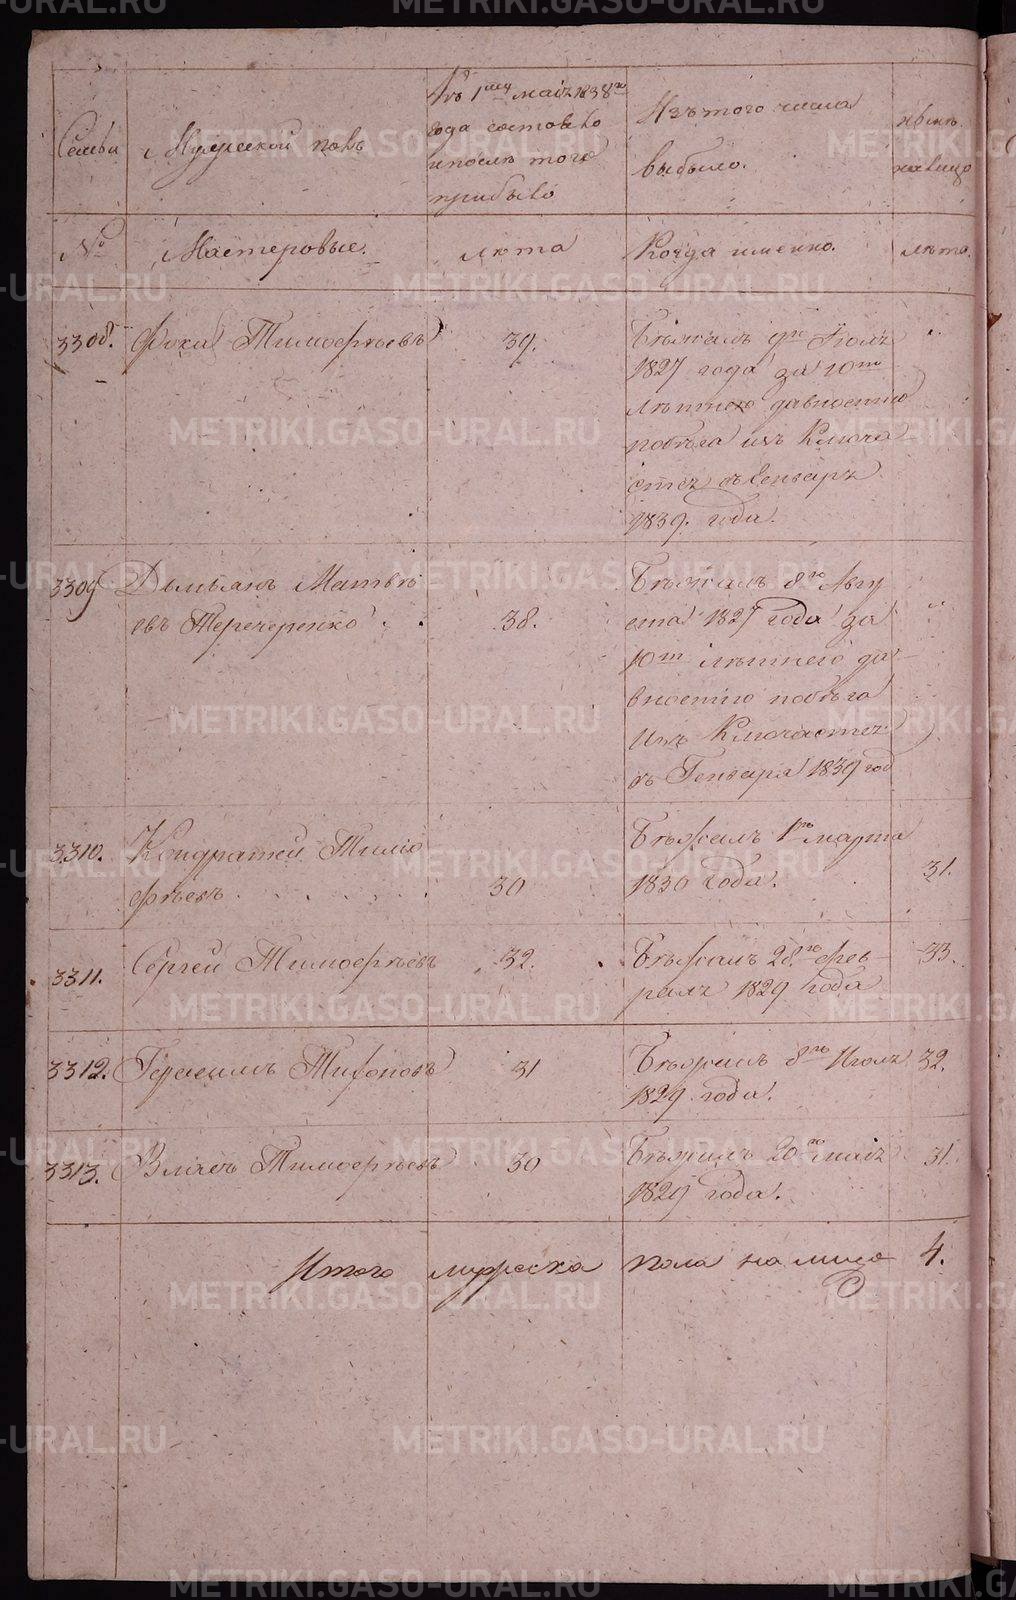 Семьи
Мужеской полъ
Къ 1му маiя 1838го
года состояло
и послѣ того
прибыло
Изъ того числа
выбыло.
нынѣ
на лицо
№
Мастеровые.
лѣта
Когда именно.
лѣта.
3308. Фока Тимофѣевъ 39. Бѣжалъ 9го Iюля
1827 года за 10ти
лѣтнею давностiю
побѣга изъ Ключа
отчъ въ Генварѣ
1839. года.
3309 Демьянъ Матвѣ Бѣжалъ 8го Авгу
евъ Печеренко 38. ста 1827 года за
10ти лѣтнею да
вностiю побѣга
изъ Ключа отчъ
въ Генварѣ 1839 год
3310. Кондратей Тимо Бѣжалъ 1го марта
фѣевъ 30 1830 года. 31.
3311. Сергей Тимофѣевъ 32. Бѣжалъ 28го фев-
раля 1829 года 33.
3312. Герасимъ Тифоновъ 31 Бѣжалъ 8го Июля 32.
1829 года.
3313. Власъ Тимофѣевъ 30 Бѣжалъ 20го маiя 31.
1829 года.
Итого мужеска пола на лицо 4.
METRIKI.GASO-URAL.RU